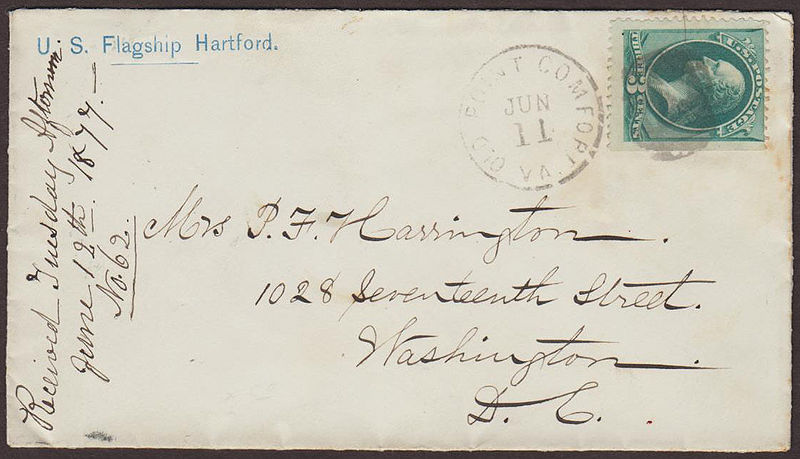 U. S. Flagship Hartford.
OLD POINT COMFORT VA
JUN
11
U.S. POSTAGE
3
Received Tuesday Afternoon
June 12th 1877.
No. 62.
Mrs P. F. Harrington.
1028 Seventeenth Street.
Washington.
D. C.